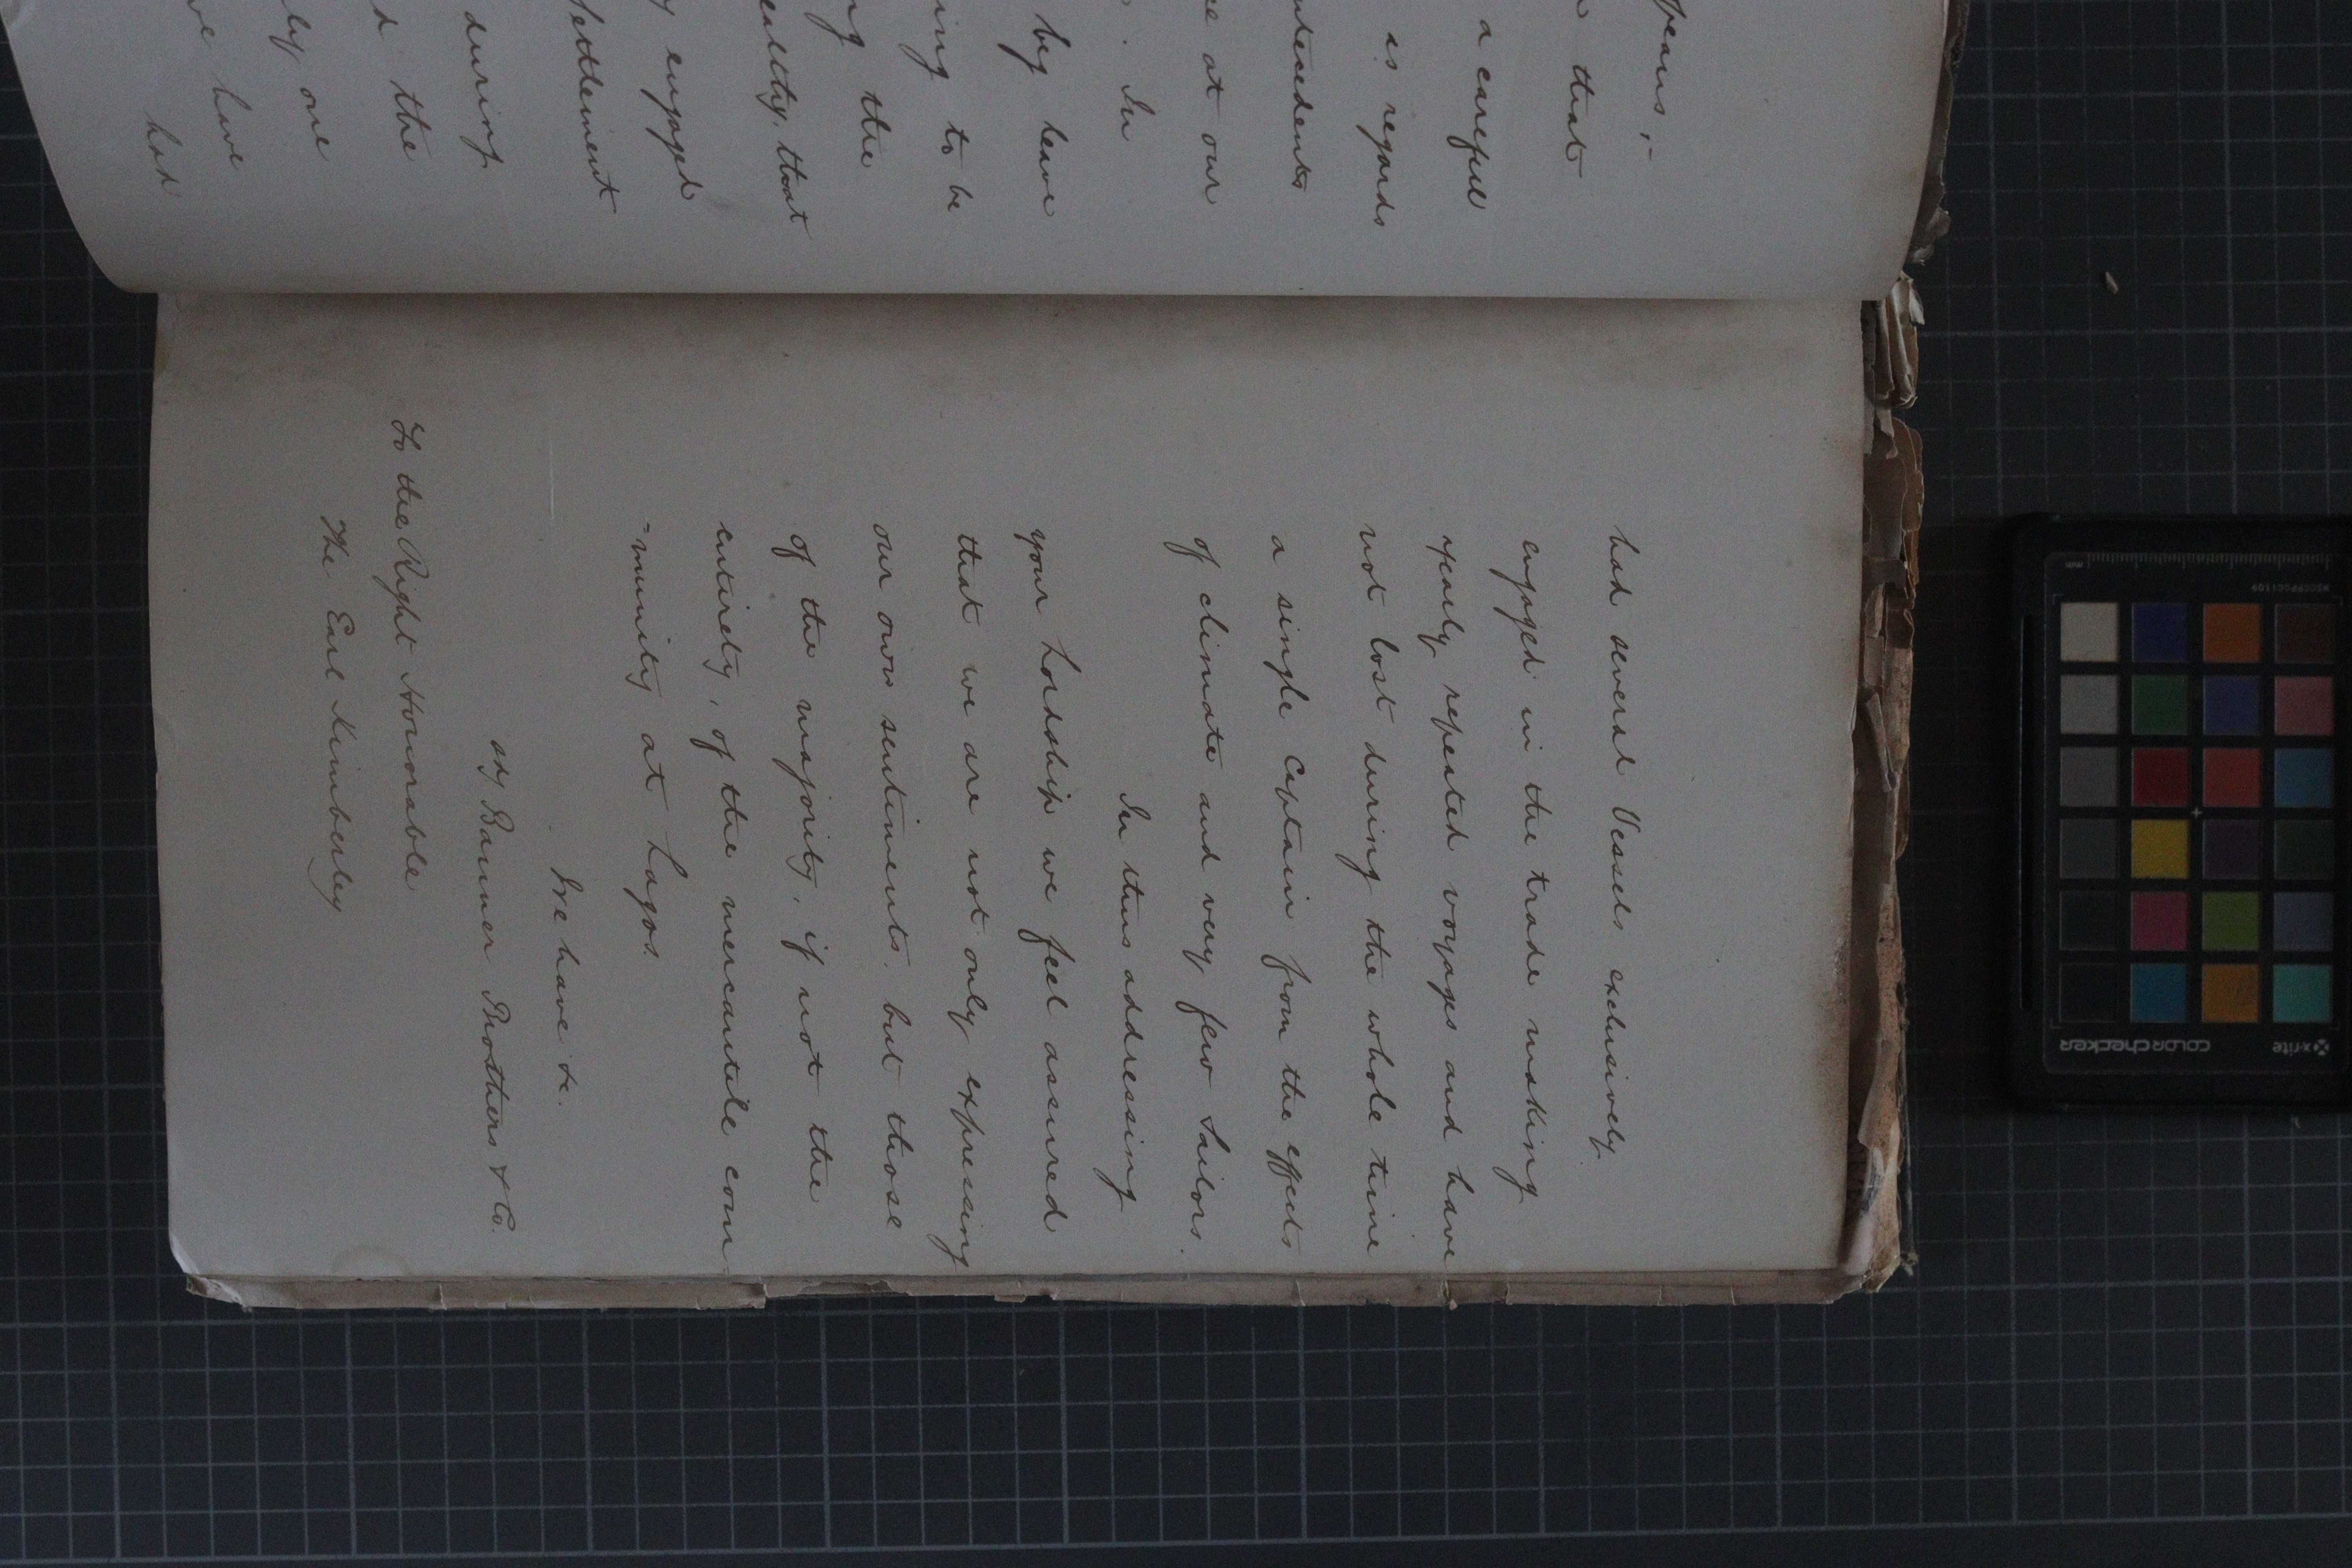 pears,-
that
a careful
is regards
ntecedents
re at our
. In
beg leave
ing to be
ng the
ealthy, that
y engaged
Settlement
during
d the
ly one
ve have
had
had several Vessels exclusively
engaged in the trade making
yearly repeated voyages and have
not lost during the whole time
a single Captain from the effects
of climate and very few Sailors.
In thus addressing
your Lordship we feel assured
that we are not only expressing
our own sentiments, but those
of the majority, if not the
entirety, of the mercantile com
-munity at Lagos.
We have &c.
sd/ Banner Brothers & Co.
To the Right Honorable
The Earl Kimberley
mm
x-rite
colorchecker